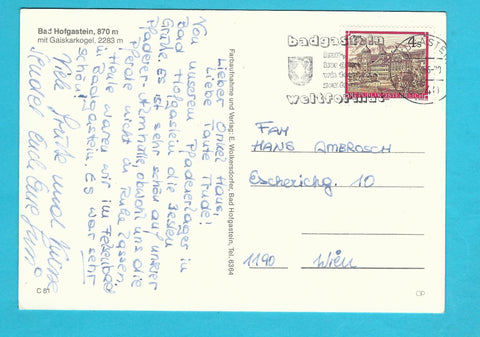 Bad Hofgastein, 870 m
mit Gaiskarkogel, 2283 m
Lieber Onkel Hans,
Liebe Tante Trude!
Von unserem Pfadenerlager in
Bad Hofgastein die besten
Grüße. Es ist sehr schön auf unserer
obwohl uns die
Pferde nicht in Ruhe lassen.
Heute waren wir im Felsenbad
in Badgastein. Es war sehr
schön!
Viele Grüße und Küsse
sendet Euch Eure
C 81
Farbaufnahme und Verlag: E. Wolkersdorfer, Bad Hofgastein, Tel. 6364
badgastein
weltformat
4 S
Fam
HANS AMBROSCH
Escherichg. 10
1190 Wien